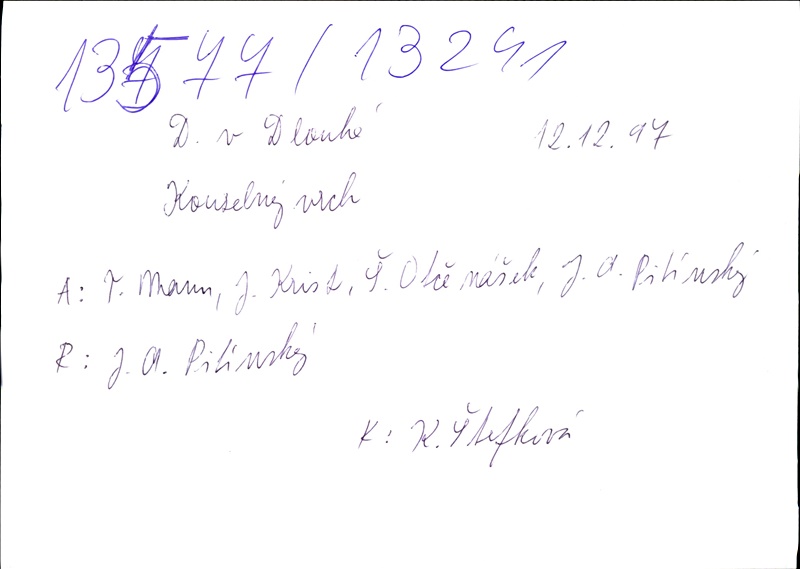 13577 / 13241
D. v Dlouhé 12.12.97
Kouzelný vrch
A: T. Mann, J. Krist, Š. Otčenášek, J. A. Pitínský
R: J. A. Pitínský
K: K. Štefková